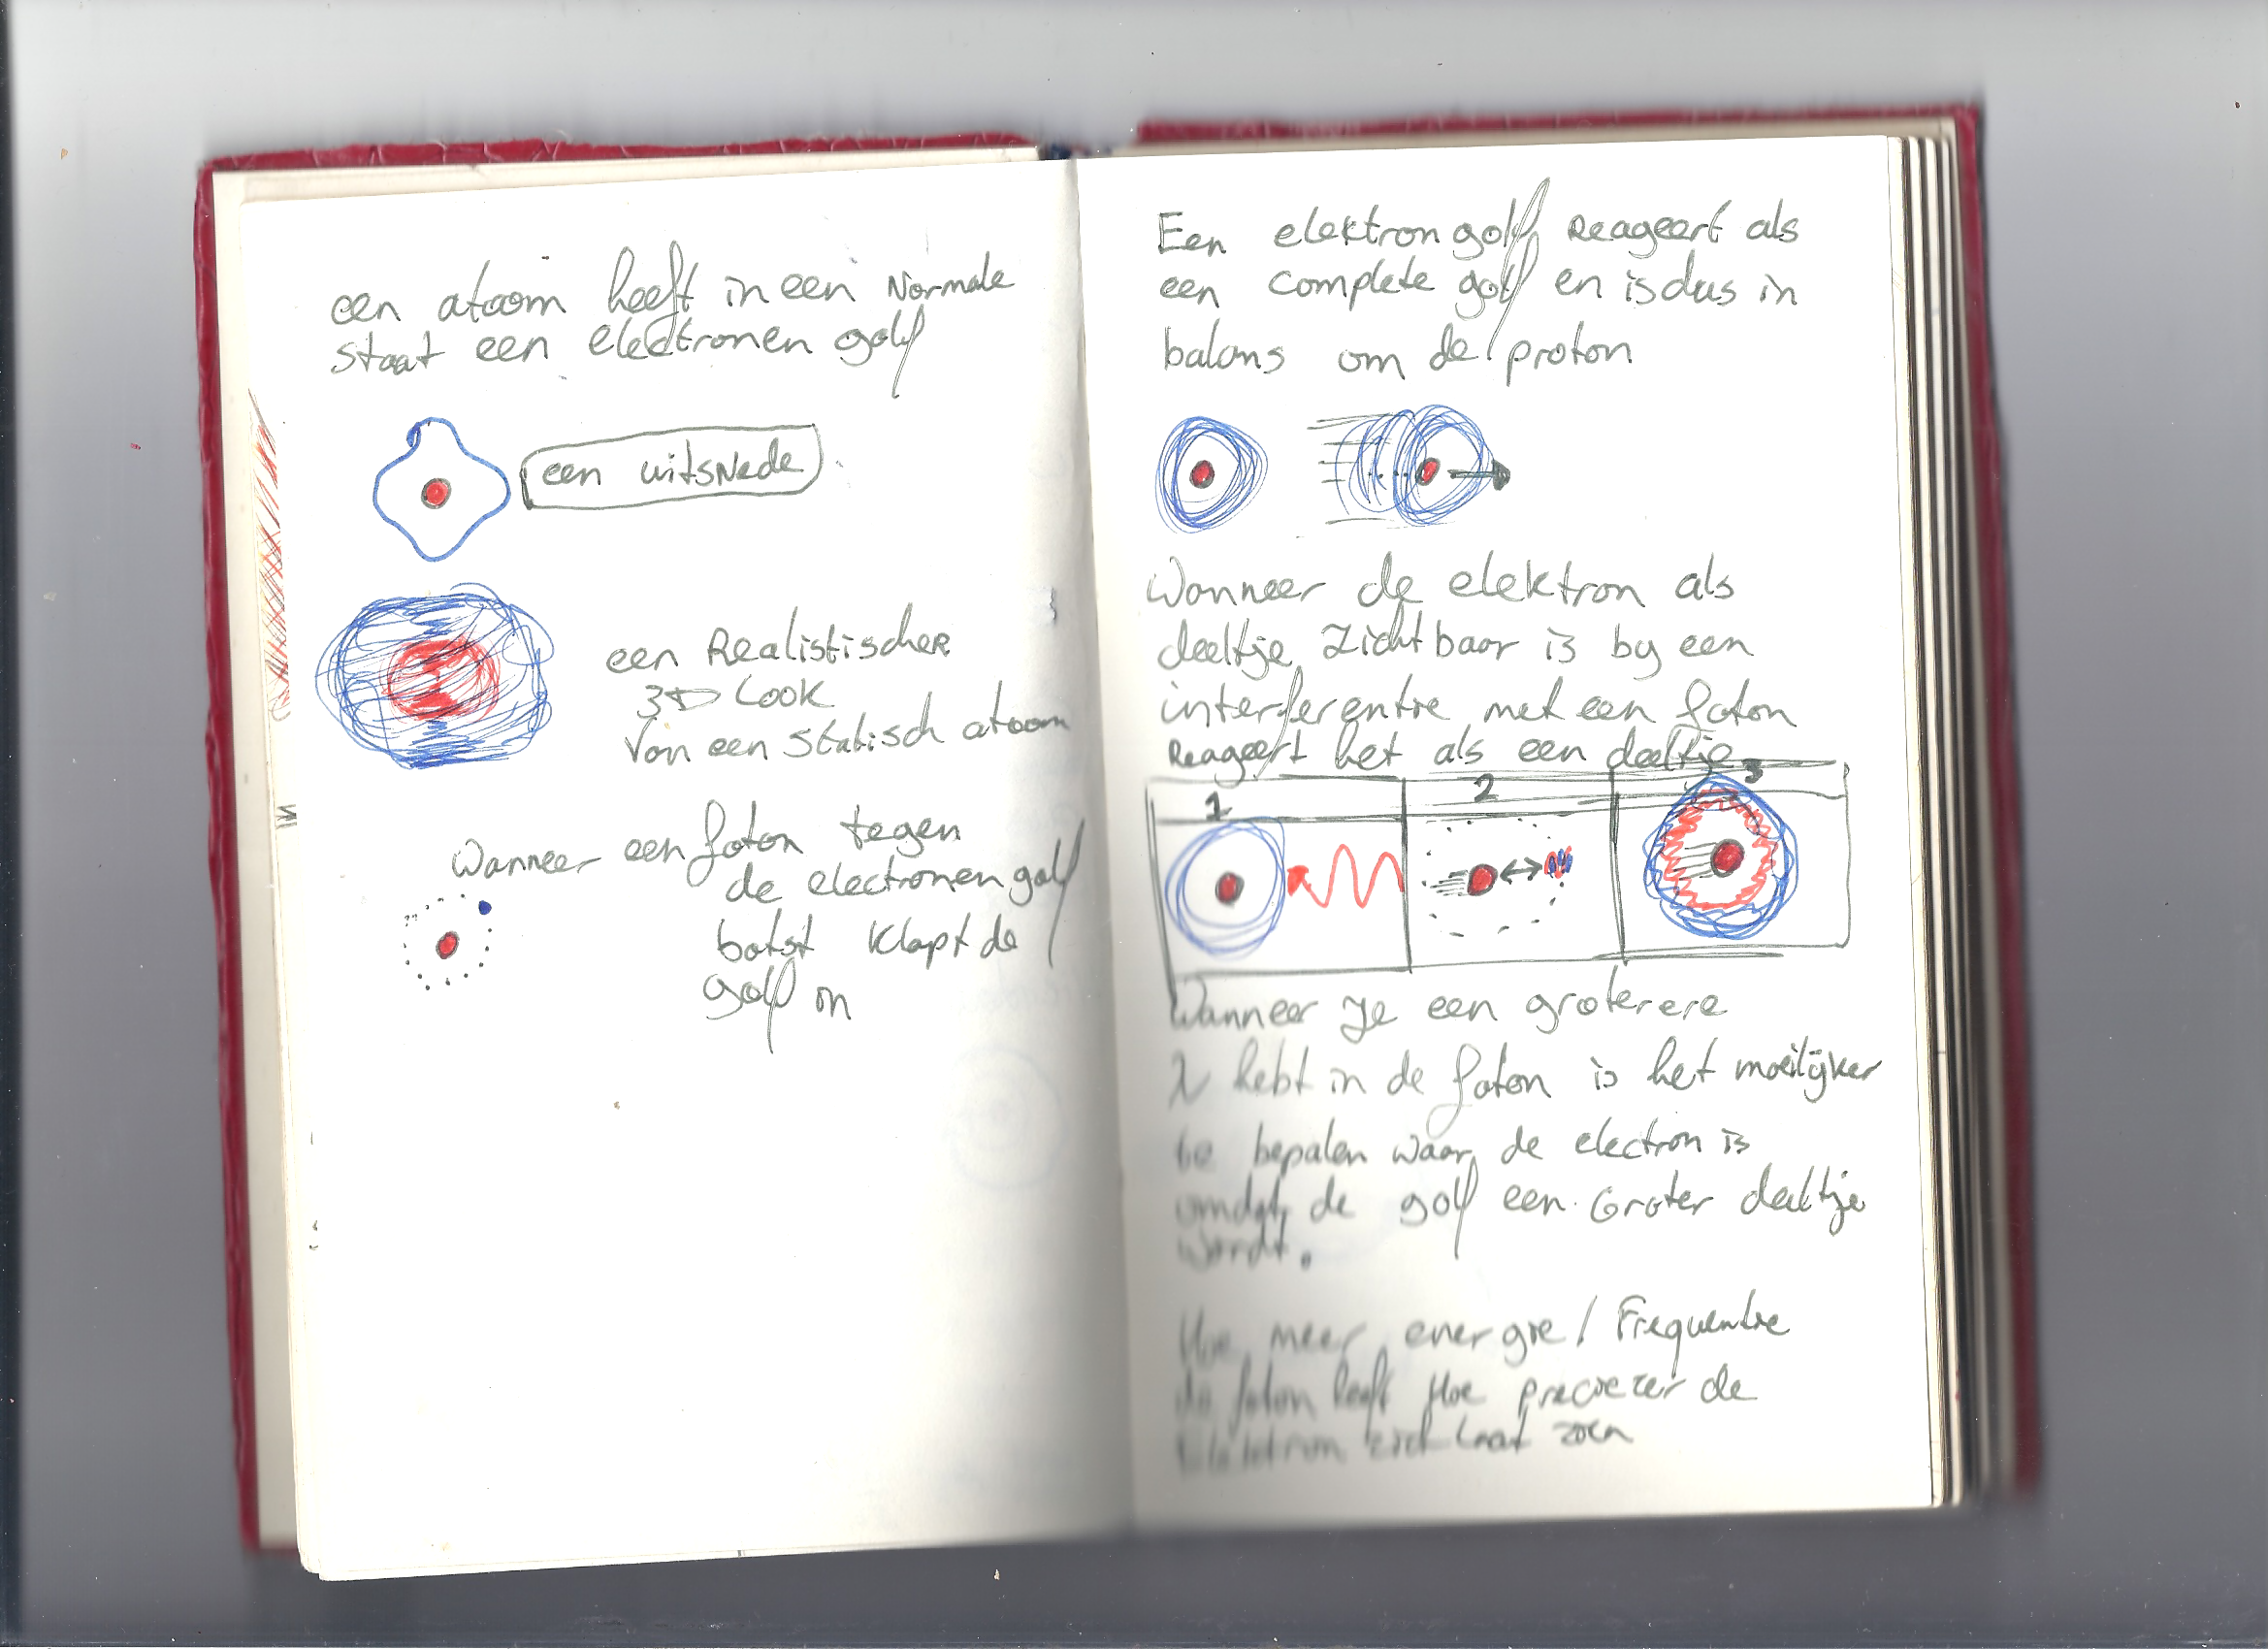 een atoom heeft in een Normale
staat een electronen golf
een uitsnede
een Realistischer
3D Look
van een statisch atoom
Wanneer een foton tegen
de electronen golf
botst klapt de
golf in
Een elektron golf Reageert als
een complete golf en is dus in
balans om de proton
Wanneer de elektron als
deeltje zichtbaar is by een
interferentie met een foton
Reageert het als een deeltje
1 2 3
Wanneer je een groterere
λ hebt in de foton is het moeilijker
te bepalen waar de electron is
omdat de golf een Groter deeltje
wordt.
Hoe meer energie / Frequentie
de foton heeft Hoe preciezer de
Elektron zich laat zien